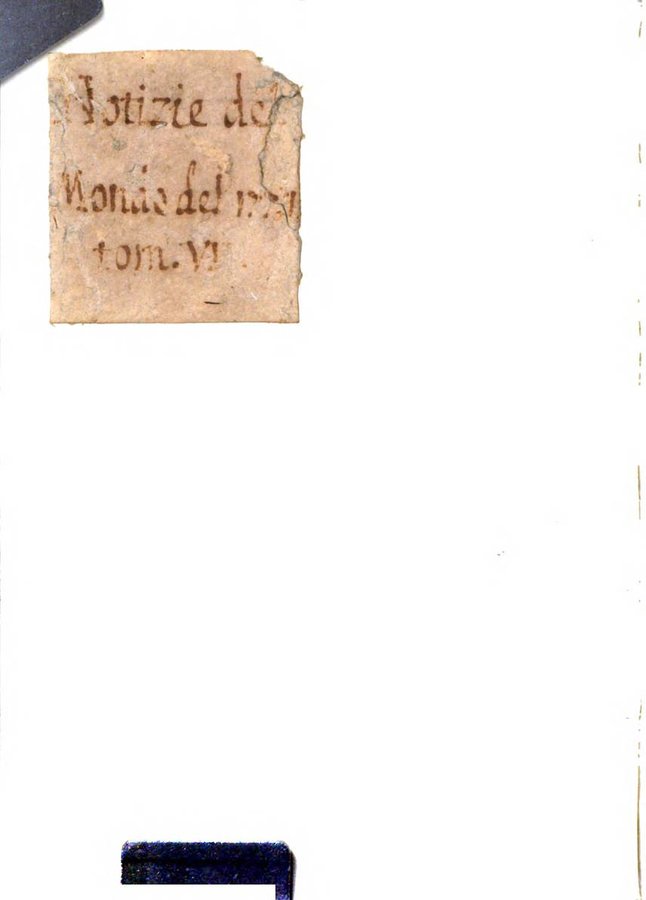 Notizie del
Mondo del
tom. VI